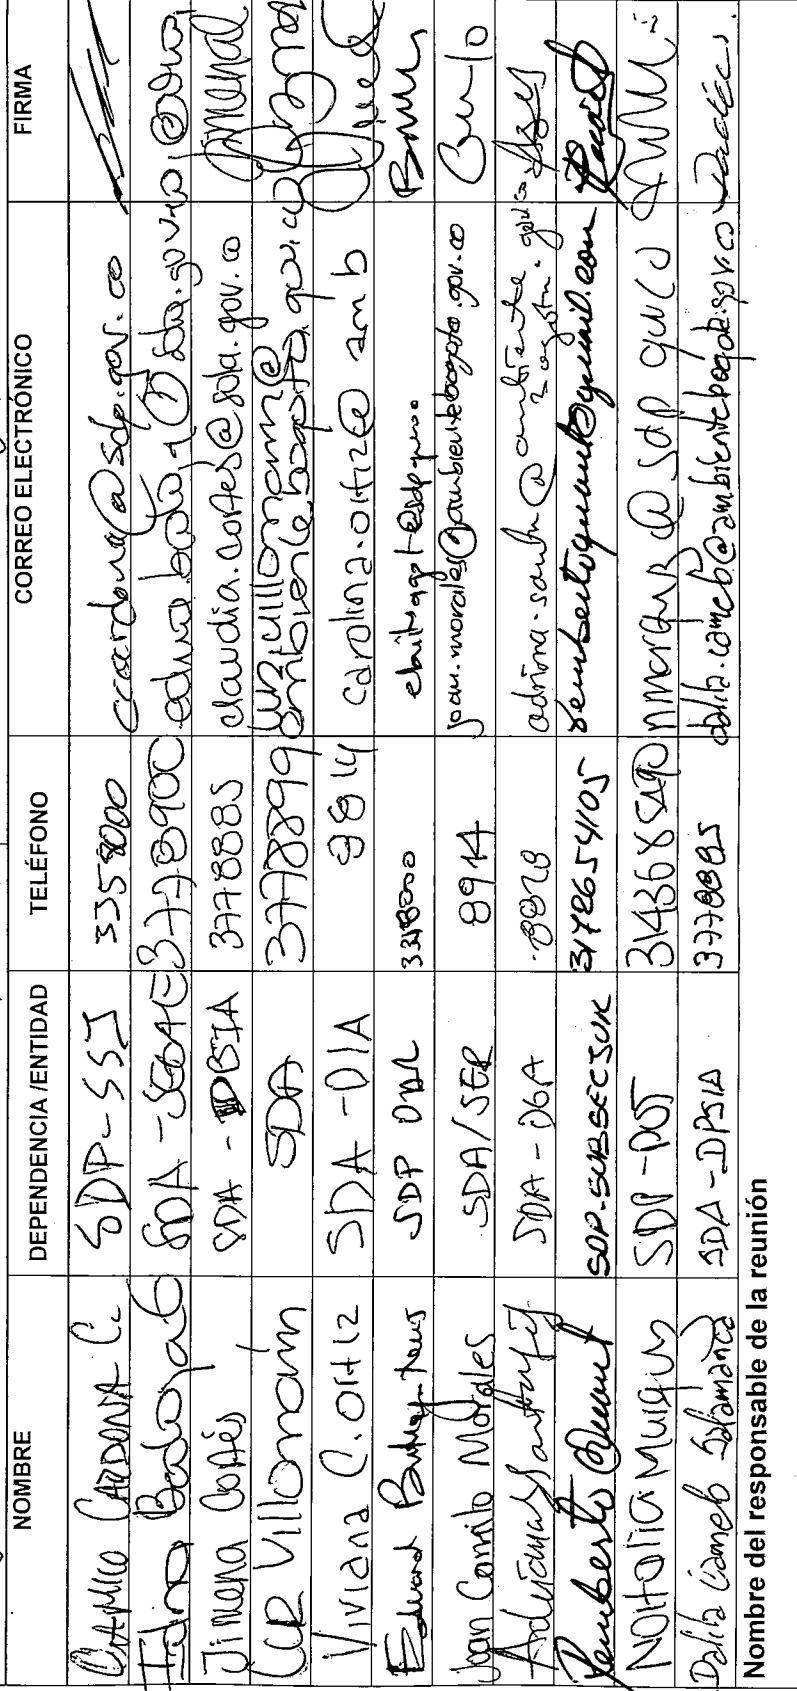 NOMBRE DEPENDENCIA /ENTIDAD TELÉFONO CORREO ELECTRÓNICO FIRMA
CAMILO CARDONA C. SDP-SSJ 3358000 ccardona@sdp.gov.co
SDA - 3778900
Jimena Cortés SDA - DBIA 3778885 claudia.cortes@sda.gov.co Jimena C
Luz Villamarin SDA 3778899 luz.villamarin@
ambientebogota.gov.co
Viviana C. Ortiz SDA - DIA 8814 carolina.ortiz@amb
Edward Buitrago Torres SDP 3358000 ebuitrago@sdp.gov.co
Juan Camilo Morales SDA/SER 8914 juan.morales@ambientebogota.gov.co
Adriana Santa SDA - DGA 8828 adriana.santa@ambiente
bogota.gov.co
Remberto Quant SDP-SUBSECJUR 3178654105 rembertoquant@gmail.com
Natalia SDP-POT 3143685490 @sdp gov co
Dalila Camelo Salamanca SDA - DPSIA 3778885 dalila.camelo@ambientebogota.gov.co
Nombre del responsable de la reunión